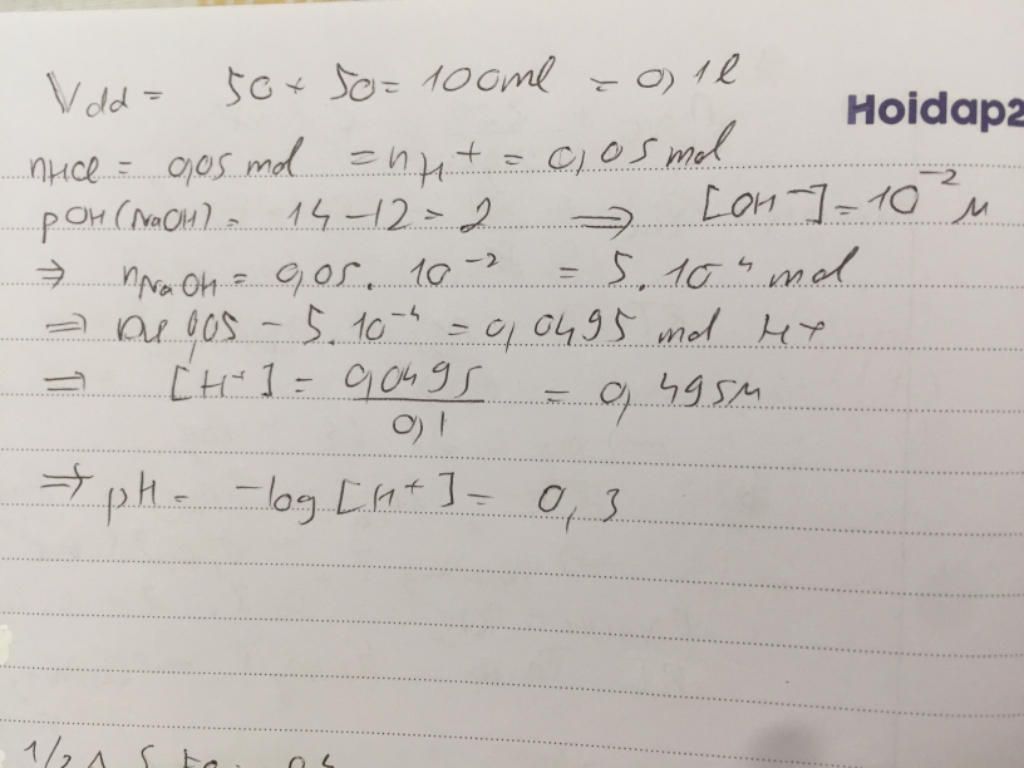 Vdd = 50 + 50 = 100ml = 0,1l
Hoidap2
nHCl = 0,05 mol = nH+ = 0,05 mol
pOH(NaOH) = 14 - 12 = 2 => [OH-] = 10^-2 M
=> nNaOH = 0,05. 10^-2 = 5. 10^-4 mol
=> Dư 0,05 - 5. 10^-4 = 0,0495 mol H+
=> [H+] = 0,0495 / 0,1 = 0,495M
=> pH = -log [H+] = 0,3